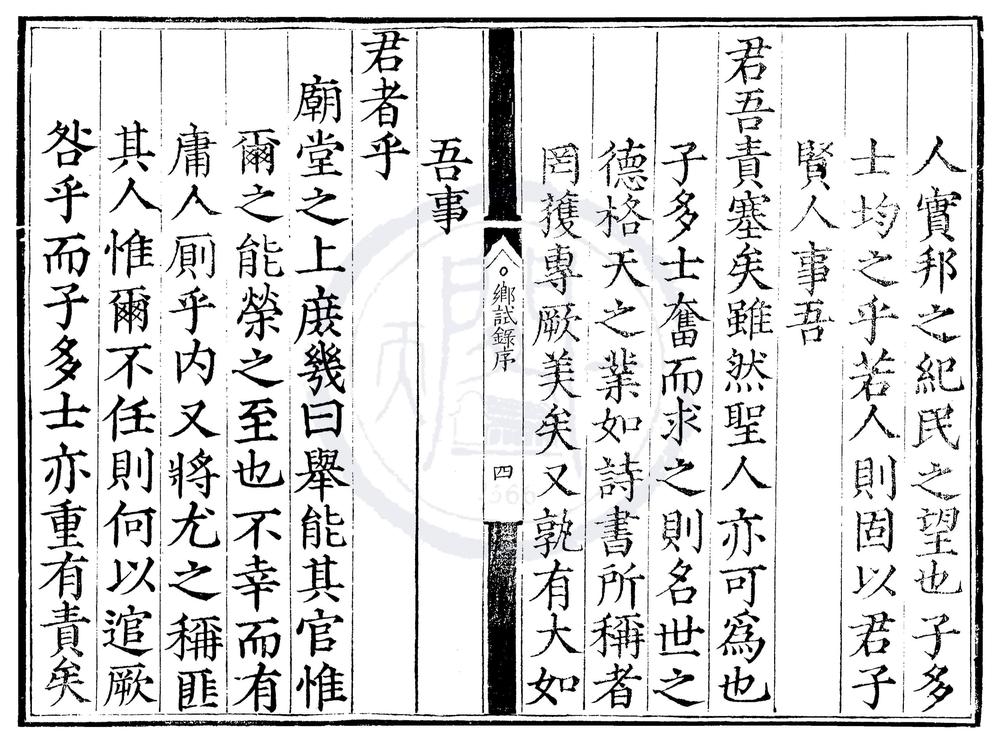 人實邦之紀民之望也子多
士均之乎若人則固以君子
賢人事吾
君吾責塞矣雖然聖人亦可爲也
子多士奮而求之則名世之
德格天之業如詩書所稱者
罔䕶專厥美矣又孰有大如
鄉試錄序
四
吾事
君者乎
廟堂之上庻幾曰舉能其官惟
爾之能榮之至也不幸而有
庸人厠乎内又將尤之稱匪
其人惟爾不任則何以逭厥
咎乎而子多士亦重有責矣